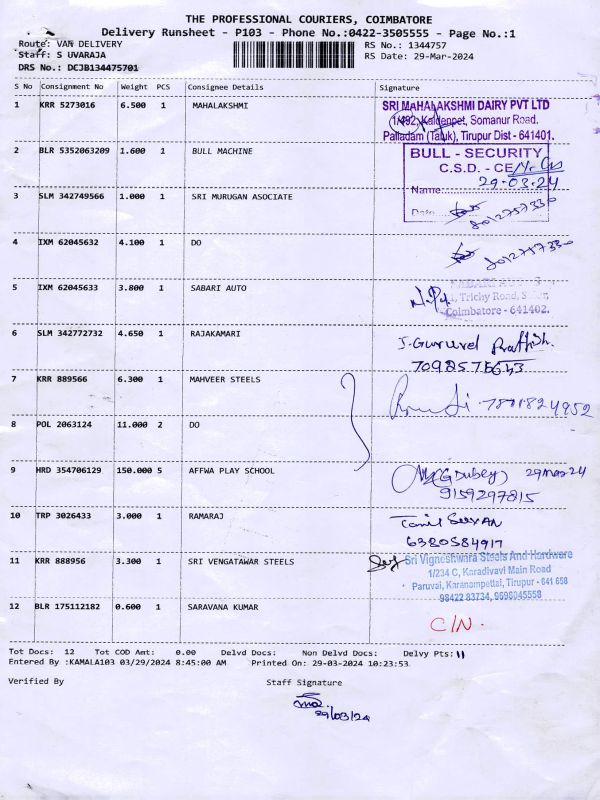 THE PROFESSIONAL COURIERS, COIMBATORE
Delivery Runsheet - P103 - Phone No.:0422-3505555 - Page No.:1
Route: VAN DELIVERY
RS No.: 1344757
Staff: S UVARAJA
RS Date: 29-Mar-2024
DRS No.: DCJB134475701
S No Consignment No Weight PCS Consignee Details Signature
1 KRR 5273016 6.500 1 MAHALAKSHMI
SRI MAHALAKSHMI DAIRY PVT LTD
1/492, Kaldenpet, Somanur Road,
Palladam (Taluk), Tirupur Dist - 641401.
2 BLR 5352063209 1.600 1 BULL MACHINE
BULL - SECURITY
C.S.D. - CE
Name
29-03-24
Date
3 SLM 342749566 1.000 1 SRI MURUGAN ASOCIATE
8012757330
4 IXM 62045632 4.100 1 DO
8012757330
5 IXM 62045633 3.800 1 SABARI AUTO
Trichy Road,
Coimbatore - 641402.
6 SLM 342772732 4.650 1 RAJAKAMARI
J. Guruvel
7 KRR 889566 6.300 1 MAHVEER STEELS
8 POL 2063124 11.000 2 DO
9 HRD 354706129 150.000 5 AFFWA PLAY SCHOOL
(G Dubey) 29 Mar 24
9159297815
10 TRP 3026433 3.000 1 RAMARAJ
6380584917
11 KRR 888956 3.300 1 SRI VENGATAWAR STEELS
Sri Vigneshwara Steels And Hardware
1/234 C, Karadivavi Main Road
Paruvai, Karanampettai, Tirupur - 641 658
98422 83734, 9698045558
12 BLR 175112182 0.600 1 SARAVANA KUMAR
C/N.
Tot Docs: 12 Tot COD Amt: 0.00 Delvd Docs: Non Delvd Docs: Delvy Pts: 11
Entered By :KAMALA103 03/29/2024 8:45:00 AM Printed On: 29-03-2024 10:23:53
Verified By Staff Signature
29/03/24